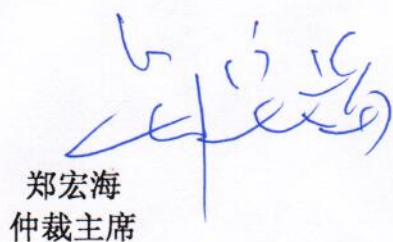 郑宏海
仲裁主席